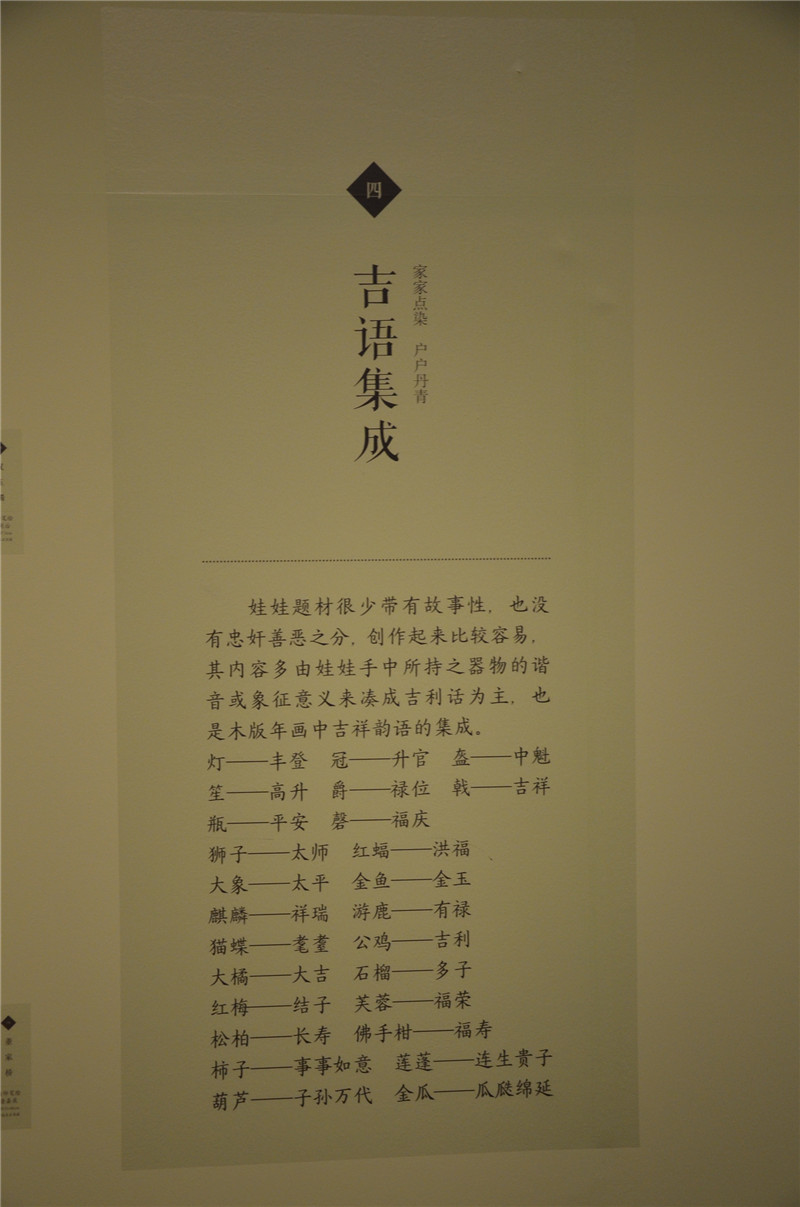 四
吉语集成
家家点染 户户丹青
娃娃题材很少带有故事性，也没
有忠奸善恶之分，创作起来比较容易，
其内容多由娃娃手中所持之器物的谐
音或象征意义来凑成吉利话为主，也
是木版年画中吉祥韵语的集成。
灯——丰登 冠——升官 盔——中魁
笙——高升 爵——禄位 戟——吉祥
瓶——平安 磬——福庆
狮子——太师 红蝠——洪福
大象——太平 金鱼——金玉
麒麟——祥瑞 游鹿——有禄
猫蝶——耄耋 公鸡——吉利
大橘——大吉 石榴——多子
红梅——结子 芙蓉——福荣
松柏——长寿 佛手柑——福寿
柿子——事事如意 莲蓬——连生贵子
葫芦——子孙万代 金瓜——瓜瓞绵延